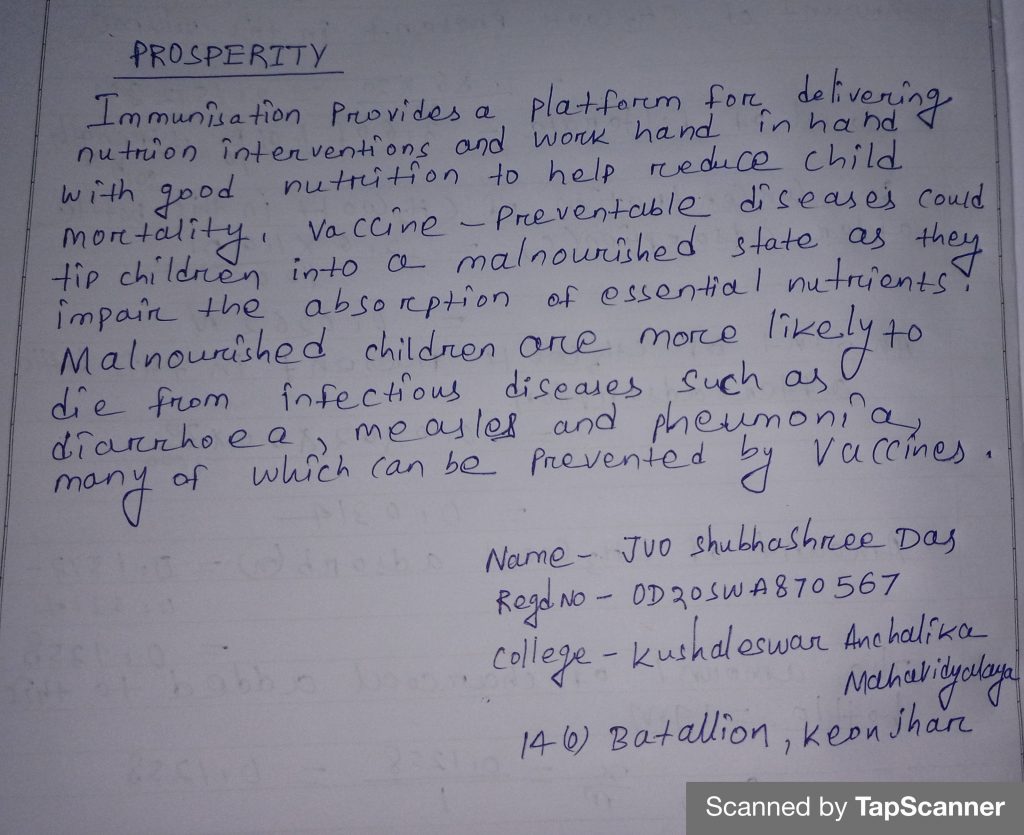 PROSPERITY
Immunisation Provides a platform for delivering
nutrion interventions and work hand in hand
with good nutrition to help reduce child
mortality. Vaccine - Preventable diseases could
tip children into a malnourished state as they
impair the absorption of essential nutrients.
Malnourished children are more likely to
die from infectious diseases such as
diarrhoea, measles and pneumonia,
many of which can be Prevented by Vaccines.
Name - JUO Shubhashree Das
Regd No - OD20SWA870567
College - Kushaleswar Anchalika
Mahavidyalaya
14(O) Batallion, Keonjhar
Scanned by TapScanner